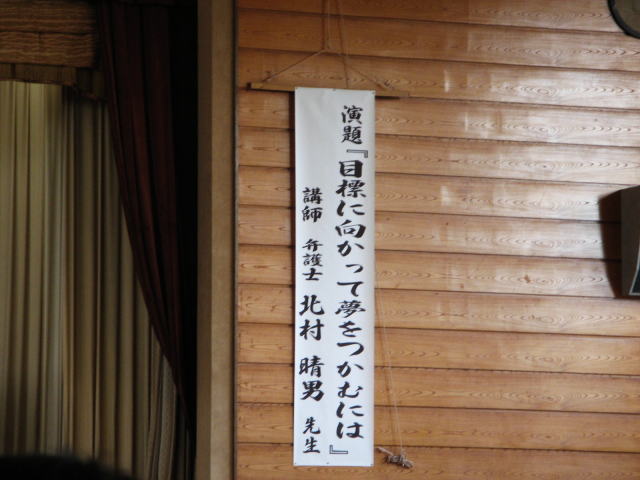 演題『目標に向かって夢をつかむには』
講師 弁護士 北村 晴男 先生